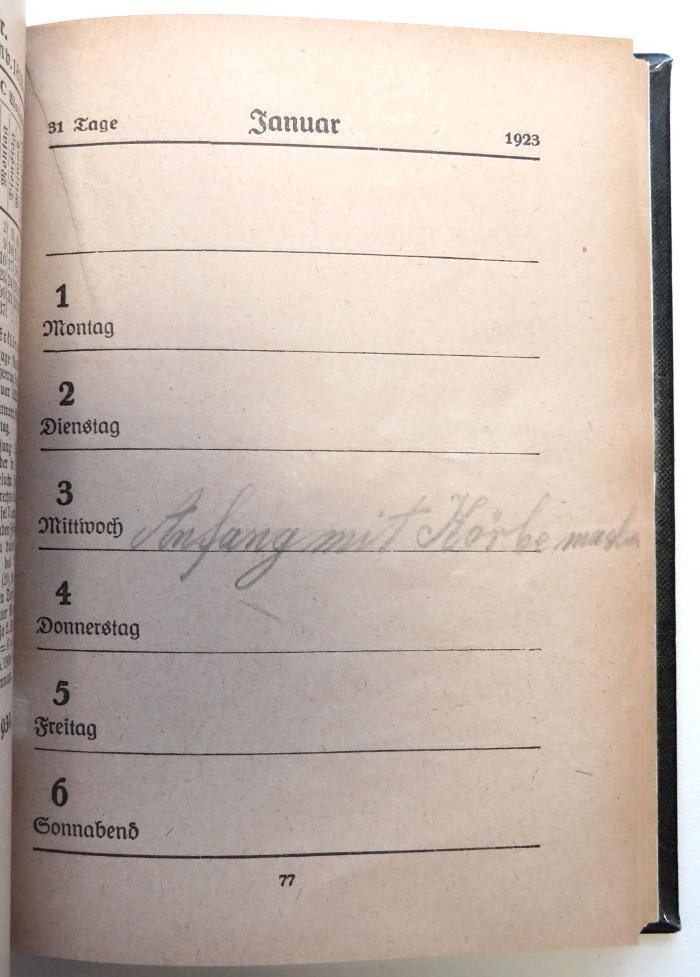 31 Tage Januar 1923
1
Montag
2
Dienstag
3
Mittwoch Anfang mit Körbe
4
Donnerstag
5
Freitag
6
Sonnabend
77